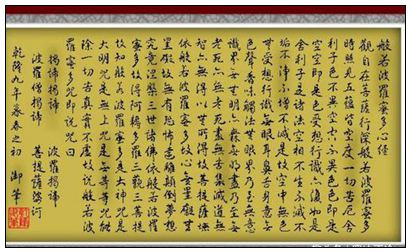 般若波羅蜜多心經
觀自在菩薩行深般若波羅蜜多
時照見五蘊皆空度一切苦厄舍
利子色不異空空不異色色即是
空空即是色受想行識亦復如是
舍利子是諸法空相不生不滅不
垢不淨不增不減是故空中無色
無受想行識無眼耳鼻舌身意無
色聲香味觸法無眼界乃至無意
識界無無明亦無無明盡乃至無
老死亦無老死盡無苦集滅道無
智亦無得以無所得故菩提薩埵
依般若波羅蜜多故心無罣礙無
罣礙故無有恐怖遠離顛倒夢想
究竟涅槃三世諸佛依般若波羅
蜜多故得阿耨多羅三藐三菩提
故知般若波羅蜜多是大神咒是
大明咒是無上咒是無等等咒能
除一切苦真實不虛故說般若波
羅蜜多咒即說咒曰
揭諦揭諦 波羅揭諦
波羅僧揭諦 菩提薩婆訶
乾隆九年春之初 御筆